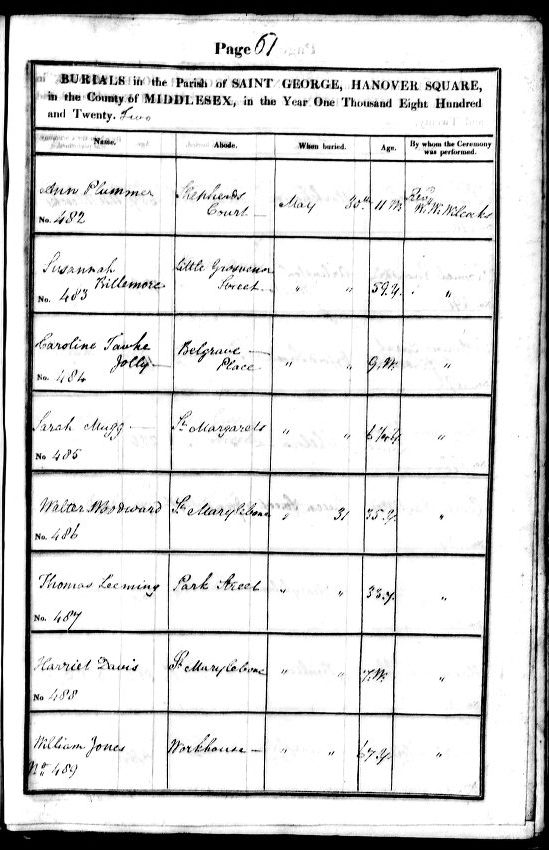 Page 61
BURIALS in the Parish of SAINT GEORGE, HANOVER SQUARE,
in the County of MIDDLESEX, in the Year One Thousand Eight Hundred
and Twenty. Two
Name. Abode. When buried. Age. By whom the Ceremony was performed.
Ann Plummer Shepherds Court May 30th 11 M Revd W. W. Wilcocks
No. 482
Susannah Killemore Little Grosvenor Street " " 59 y. "
No. 483
Caroline Jolly Belgrave Place " " 9 M. "
No. 484
Sarah Mugg St Margarets " " "
No. 485
Walter Woodward St Marylebone " 31 35 y. "
No. 486
Thomas Leeming Park Street " " 33 y. "
No. 487
Harriet Davis St Marylebone " " 7 M. "
No. 488
William Jones Workhouse " " 67 y. "
No. 489